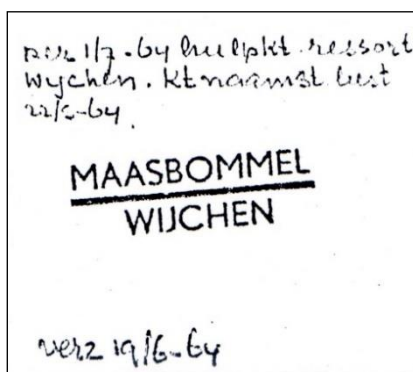 per 1/7-64 hulpkt. ressort
Wychen. kt naamst. best
22/5-64.
MAASBOMMEL
WIJCHEN
verz 19/6-64